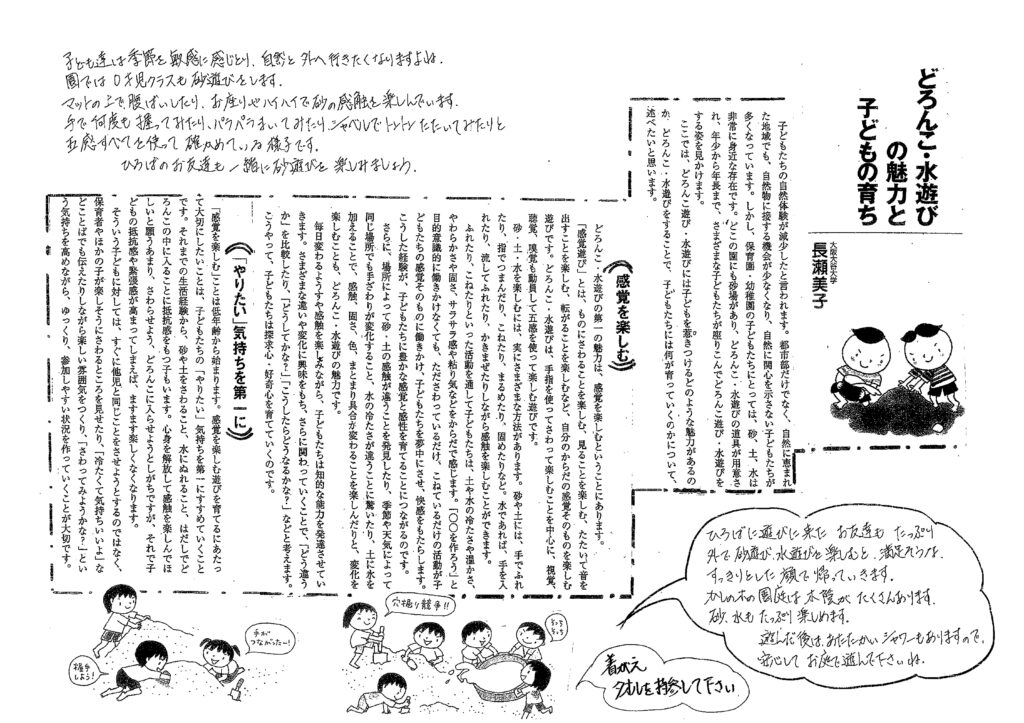 子ども達は季節を敏感に感じとり、自然と外へ行きたくなりますよね。
園では0才児クラスも砂遊びをします。
マットの上で腹ばいしたり、お座りやハイハイで砂の感触を楽しんでいます。
手で何度も握ってみたり、パラパラまいてみたり、シャベルでトントンたたいてみたりと
五感すべてを使って確かめている様子です。
ひろばのお友達も一緒に砂遊びを楽しみましょう。
どろんこ・水遊び
の魅力と
子どもの育ち
大阪大谷大学
長瀬美子
子どもたちの自然体験が減少したと言われます。都市部だけでなく、自然に恵まれ
た地域でも、自然物に接する機会が少なくなり、自然に関心を示さない子どもたちが
多くなっています。しかし、保育園・幼稚園の子どもたちにとっては、砂、土、水は
非常に身近な存在です。どこの園にも砂場があり、どろんこ・水遊びの道具が用意さ
れ、年少から年長まで、さまざまな子どもたちが座りこんでどろんこ遊び・水遊びを
する姿を見かけます。
ここでは、どろんこ遊び・水遊びには子どもを惹きつけるどのような魅力があるの
か、どろんこ・水遊びをすることで、子どもたちには何が育っていくのかについて、
述べたいと思います。
《感覚を楽しむ》
どろんこ・水遊びの第一の魅力は、感覚を楽しむということにあります。
「感覚遊び」とは、ものにふれることを楽しむ、見ることを楽しむ、たたいて音を
出すことを楽しむ、転がることを楽しむなど、自分のからだの感覚そのものを楽しむ
遊びです。どろんこ・水遊びは、手指を使ってさわって楽しむことを中心に、視覚、
聴覚、嗅覚も動員して五感を使って楽しむ遊びです。
砂・土・水を楽しむには、実にさまざまな方法があります。砂や土には、手でふれ
たり、指でつまんだり、こねたり、まるめたり、固めたりなど。水であれば、手を入
れたり、流してふれたり、かきまぜたりしながら感触を楽しむことができます。
ふれたり、こねたりといった活動を通して子どもたちは、土や水の冷たさや温かさ、
やわらかさや固さ、サラサラ感や粘り気などをからだで感じます。「〇〇を作ろう」と
目的意識的に働きかけなくても、たださわっているだけ、こねているだけの活動が子
どもたちの感覚そのものに働きかけ、子どもたちを夢中にさせ、快感をもたらします。
こうした経験が、子どもたちに豊かな感覚と感性を育てることにつながるのです。
さらに、場所によって砂・土の感触が違うことを発見したり、季節や天気によって
同じ場所でも手ざわりが変化すること、水の冷たさが違うことに驚いたり、土に水を
加えることで、感触、固さ、色、まとまり具合が変わることを楽しんだりと、変化を
楽しむことも、どろんこ・水遊びの魅力です。
毎日変わるようすや感触を楽しみながら、子どもたちは知的な能力を発達させてい
きます。さまざまな違いや変化に興味をもち、さらに関わっていくことで、「どう違う
か」を比較したり、「どうしてかな？」「こうしたらどうなるかな？」などと考えます。
こうやって、子どもたちは探求心・好奇心を育てていくのです。
《「やりたい」気持ちを第一に》
「感覚を楽しむ」ことは低年齢から始まります。感覚を楽しむ遊びを育てるにあたっ
て大切にしたいことは、子どもたちの「やりたい」気持ちを第一にすすめていくこと
です。それまでの生活経験から、砂や土をさわること、水にぬれること、はだしでど
ろんこの中に入ることに抵抗感をもつ子もいます。心身を解放して感触を楽しんでほ
しいと願うあまり、さわらせよう、どろんこに入らせようとしがちですが、それで子
どもの抵抗感や緊張感が高まってしまえば、ますます楽しくなくなります。
そういう子どもに対しては、すぐに他児と同じことをさせようとするのではなく、
保育者やほかの子が楽しそうにさわるところを見せたり、「冷たくて気持ちいいよ」な
どとことばでも伝えたりしながら楽しい雰囲気をつくり、「さわってみようかな？」とい
う気持ちを高めながら、ゆっくり、参加しやすい状況を作っていくことが大切です。
ひろばに遊びに来た お友達も たっぷり
外で砂遊び、水遊びを楽しむと、満足そうな、
すっきりとした顔で帰っていきます。
かしの木の園庭は木陰がたくさんあります。
砂、水もたっぷり楽しめます。
遊んだ後は、あたたかいシャワーもありますので、
安心してお庭で遊んで下さいね。
着がえ
タオルを持参して下さい
握手しよう！
手がつながったー！
穴掘り競争！！